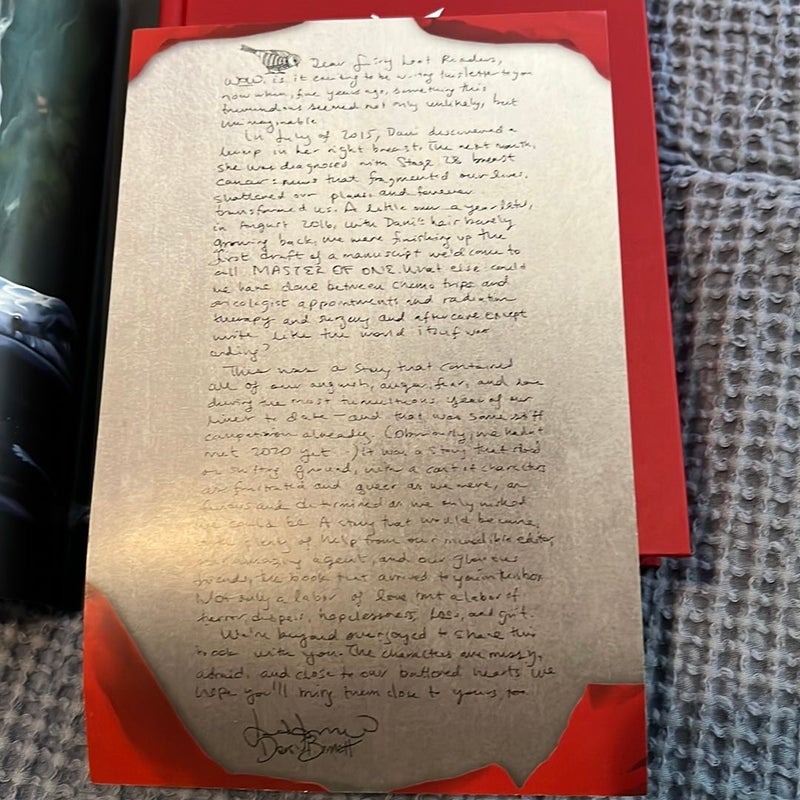 Dear Fairy Loot Readers,
WOW. is it exciting to be writing this letter to you
now when, five years ago, something this
tremendous seemed not only unlikely, but
unimaginable.
In July of 2015, Dani discovered a
lump in her right breast. The next month,
she was diagnosed with Stage 2B breast
cancer: news that fragmented our lives,
shattered our plans and forever
transformed us. A little over a year later,
in August 2016, with Dani's hair barely
growing back, we were finishing up the
first draft of a manuscript we'd come to
call MASTER OF ONE. What else could
we have done between chemo trips and
oncologist appointments and radiation
therapy and surgery and aftercare except
write like the world itself was
ending?
This was a story that contained
all of our anguish, anger, fear, and love
during the most tumultuous year of our
lives to date — and that was some stiff
competition already. (Obviously, we hadn't
met 2020 yet.) It was a story that stood
on shifting ground, with a cast of characters
as frustrated and queer as we were, as
furious and determined as we only wished
we could be. A story that would become,
with plenty of help from our incredible editor,
our amazing agent, and our glorious
friends, the book that arrived to you in this box.
Not only a labor of love but a labor of
terror, despair, hopelessness, loss, and grit.
We're beyond overjoyed to share this
book with you. The characters are messy,
afraid, and close to our battered hearts. We
hope you'll bring them close to yours, too.
Dani Bennett